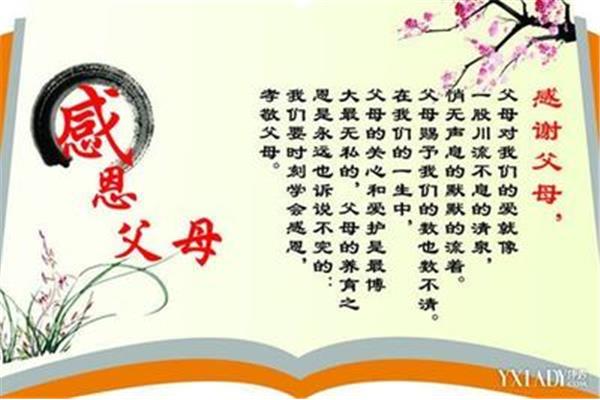 感谢父母，
父母对我们的爱就像
一股川流不息的清泉，
悄无声息的默默的流着。
父母赐予我们的数也数不清。
在我们的一生中，
父母的关心和爱护是最博
大最无私的，父母的养育之
恩是永远也诉说不完的：
我们要时刻学会感恩，
孝敬父母。
感恩父母
YXLADY
.COM